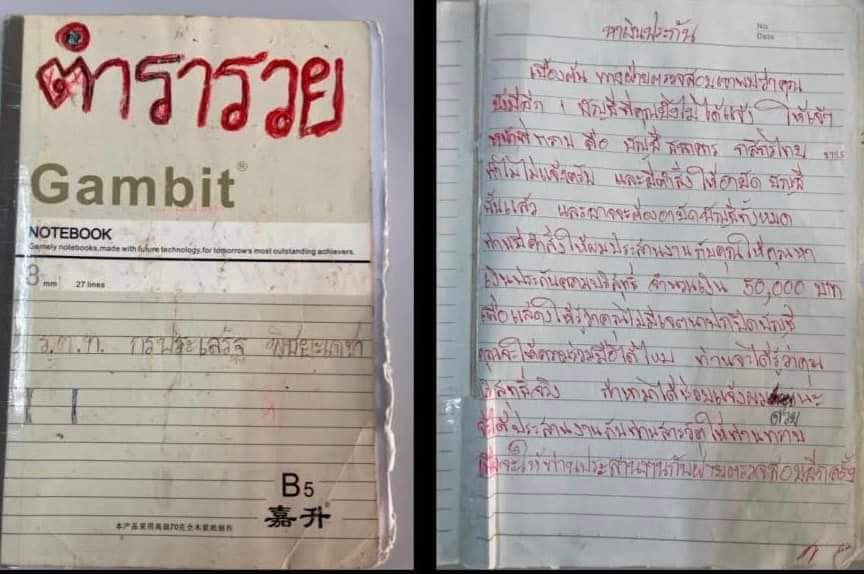 ตำรารวย
Gambit®
NOTEBOOK
Gamely notebooks, made with future technology, for tomorrow's most outstanding achievers.
8 mm 27 lines
ร.ต.ท. กรประเสริฐ
B5
嘉升
本产品采用高级70克全木浆纸制作
No
Date
หาเงินประกัน
เบื้องต้น ทางฝ่ายตรวจสอบเขาพบว่าคุณ
ยังมีอีก 1 บัญชีที่คุณยังไม่ได้แจ้ง ให้เจ้า
หน้าที่ทราบ คือ บัญชี ธนาคาร กสิกรไทย
ทำไมไม่แจ้งครับ และมีคำสั่งให้อายัด บัญชี
นั้นแล้ว และอาจจะต้องอายัดบัญชีทั้งหมด
ท่านมีคำสั่งให้ผมประสานงานกับคุณให้คุณหา
เงินประกันความบริสุทธิ์ จำนวนเงิน 50,000 บาท
เพื่อแสดงให้รู้ว่าคุณไม่มีเจตนาปกปิดบัญชี
คุณจะให้ความร่วมมือได้ไหม ท่านจะได้รู้ว่าคุณ
บริสุทธิ์จริง ถ้าหาได้พร้อมแจ้งผม นะ
ด้วย
จะได้ประสานงานกับท่าน ให้ท่านทราบ
จะให้ท่านประสานงานกับฝ่ายตรวจสอบอีกครั้ง